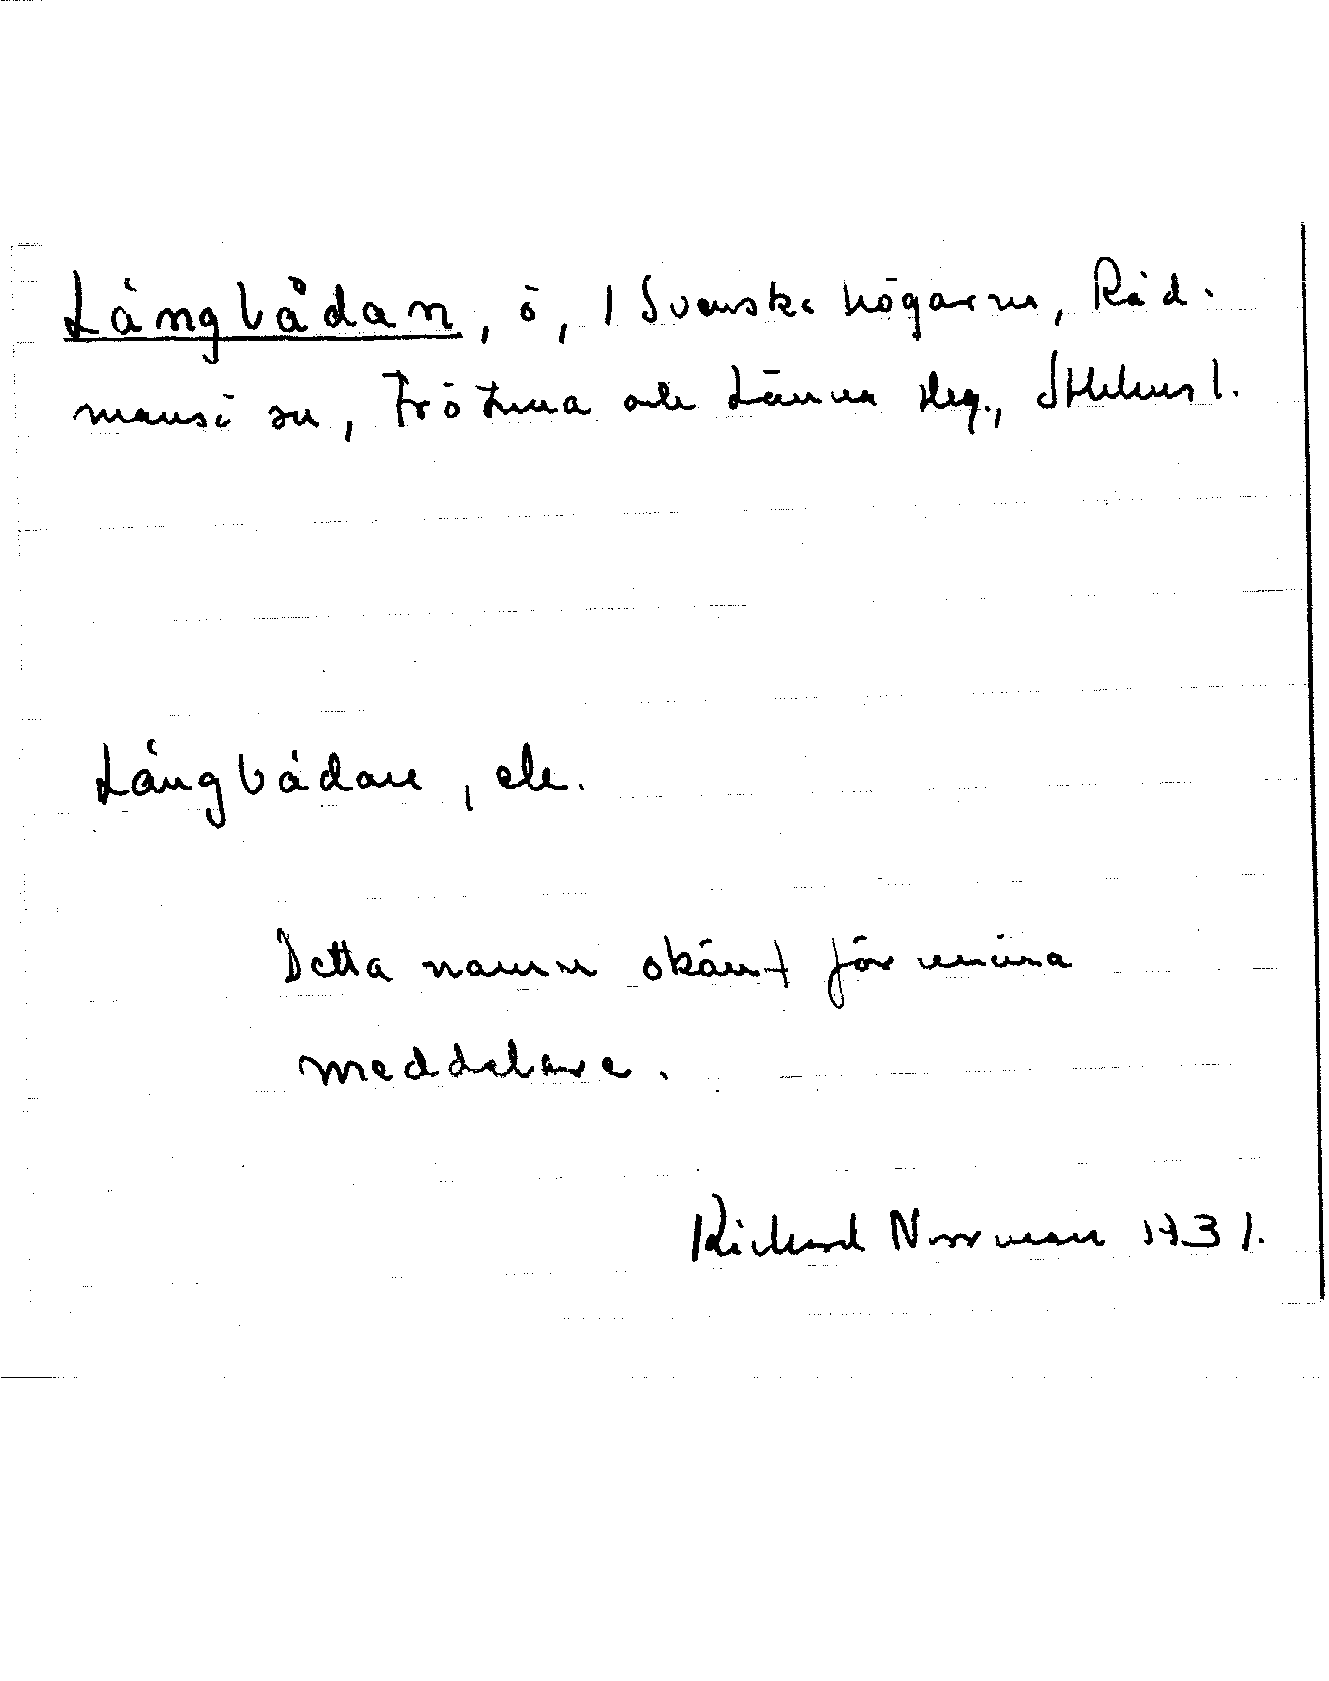 Långbådan, ö, i Svenska högarna, Råd-
mansö sn, Frötuna och Länna slg., Sthlms l.
Långbådan, ek.
Detta namn okänt för mina
meddelare.
Richard Norrman 1931.